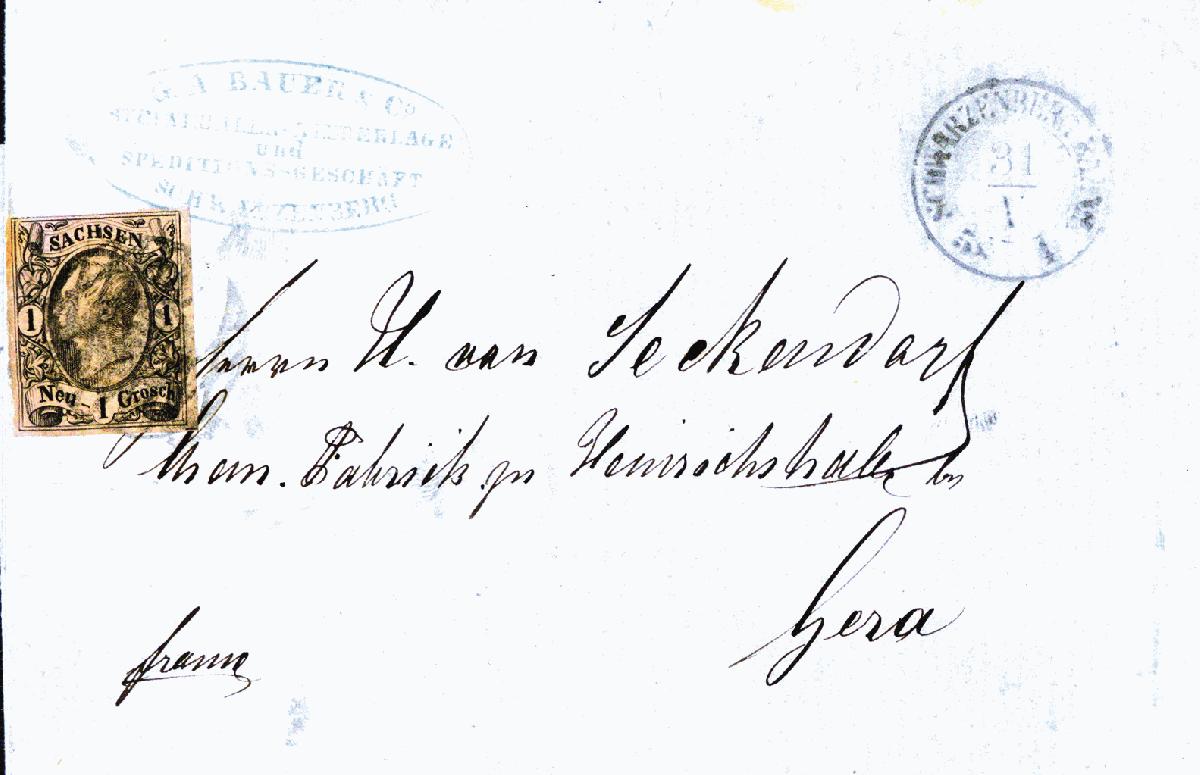 G. A BAUER & Co
NIEDERLAGE
und
SPEDITIONS-GESCHÄFT
SCHWARZENBERG
SCHWARZENBERG
31
I
1
SACHSEN
1 1
Neu- 1 Grosch
Herrn H. von Seckendorf
Chem. Fabrik zu Heinrichshall bei
Gera
franco